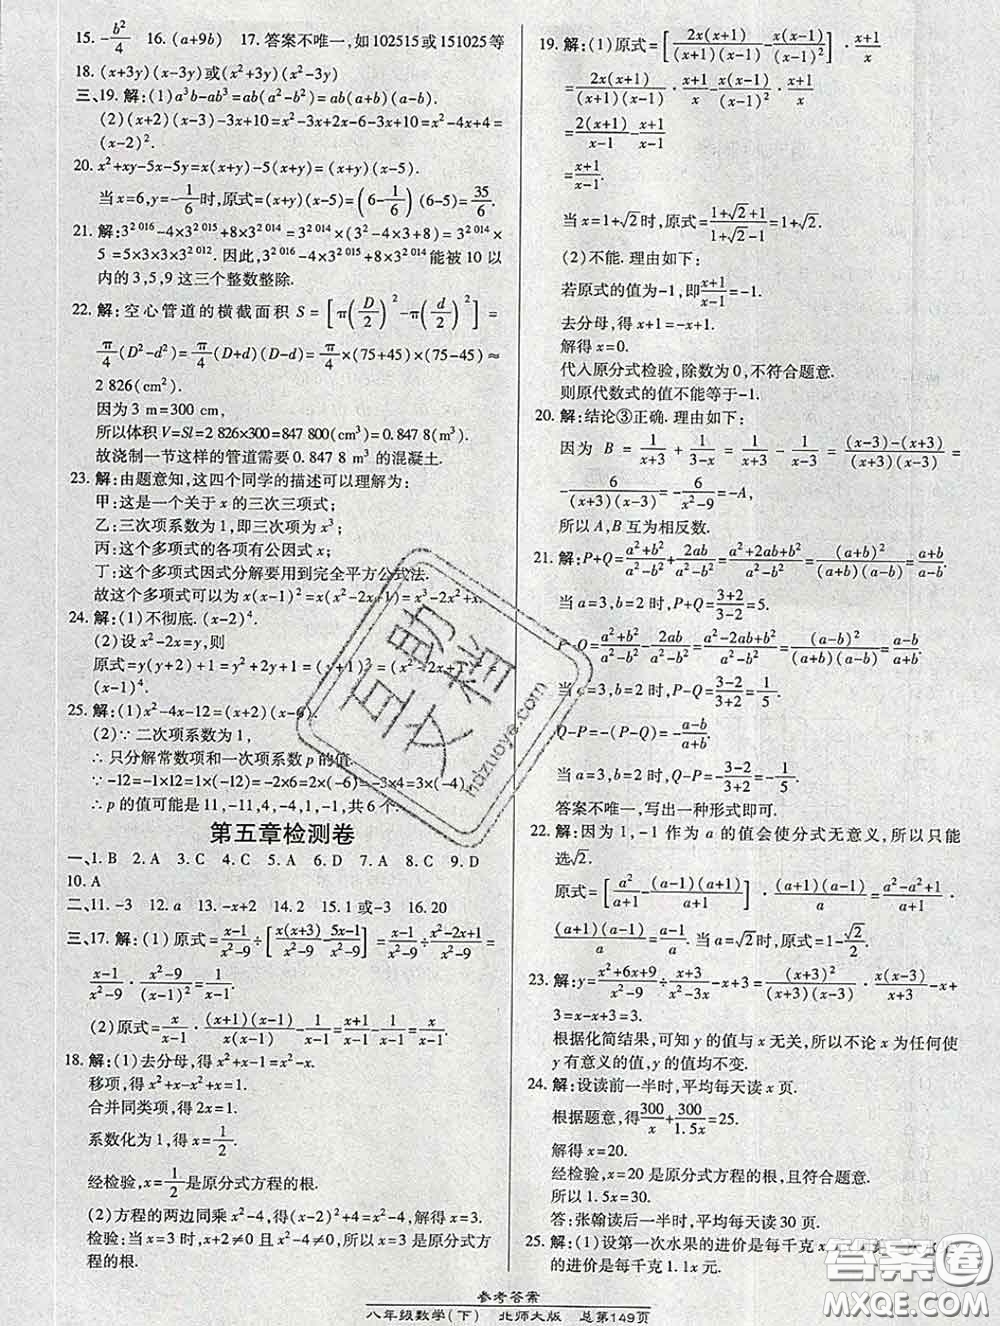 15. -b²/4  16. (a+9b)  17. 答案不唯一,如 102515 或 151025 等
18. (x+3y)(x-3y)或(x²+3y)(x²-3y)
三、19. 解:(1)a³b-ab³=ab(a²-b²)=ab(a+b)(a-b).
(2)(x+2)(x-3)-3x+10=x²-3x+2x-6-3x+10=x²-4x+4=
(x-2)².
20. x²+xy-5x-5y=x(x+y)-5(x+y)=(x+y)(x-5).
当 x=6,y=-1/6时,原式=(x+y)(x-5)=(6-1/6)(6-5)=35/6.
21. 解:3^2 016-4×3^2 015+8×3^2 014=3^2 014×(3²-4×3+8)=3^2 014×
5=5×3×3×3^2 012. 因此,3^2 016-4×3^2 015+8×3^2 014能被 10 以
内的 3,5,9 这三个整数整除.
22. 解:空心管道的横截面积 S=[π(D/2)²-π(d/2)²]=
π/4(D²-d²)=π/4(D+d)(D-d)=π/4×(75+45)×(75-45)≈
2 826(cm²).
因为 3 m=300 cm,
所以体积 V=Sl=2 826×300=847 800(cm³)=0.847 8(m³).
故浇制一节这样的管道需要 0.847 8 m³ 的混凝土.
23. 解:由题意知,这四个同学的描述可以理解为:
甲:这是一个关于 x 的三次三项式;
乙:三次项系数为 1,即三次项为 x³;
丙:这个多项式的各项有公因式 x;
丁:这个多项式因式分解要用到完全平方公式法.
故这个多项式可以为 x(x-1)²=x(x²-2x+1)=x³-2x²+x.
24. 解:(1)不彻底. (x-2)⁴.
(2)设 x²-2x=y,则
原式=y(y+2)+1=y²+2y+1=(y+1)²=(x²-2x+1)²=
(x-1)⁴.
25. 解:(1)x²-4x-12=(x+2)(x-6).
(2)∵二次项系数为 1,
∴只分解常数项和一次项系数 p 的值.
∵-12=-1×12=1×(-12)=-2×6=2×(-6)=-3×4=3×(-4),
∴p 的值可能是 11,-11,4,-4,1,-1,共 6 个.
第五章检测卷
一、1. B  2. A  3. C  4. C  5. C  6. D  7. A  8. C  9. D
10. A
二、11. -3  12. a  13. -x+2  14. 2  15. 1 或-3  16. 20
三、17. 解:(1)原式=(x-1)/(x²-9)÷[x(x+3)/(x²-9)-(5x-1)/(x²-9)]=(x-1)/(x²-9)÷(x²-2x+1)/(x²-9)=
(x-1)/(x²-9)·(x²-9)/(x-1)²=1/(x-1).
(2)原式=x/(x-1)·(x+1)(x-1)/x(x-1)-1/(x-1)=(x+1)/(x-1)-1/(x-1)=x/(x-1).
18. 解:(1)去分母,得 x²+x-1=x²-x.
移项,得 x²-x²+x+x=1.
合并同类项,得 2x=1.
系数化为 1,得 x=1/2.
经检验,x=1/2是原分式方程的根.
(2)方程的两边同乘 x²-4,得(x-2)²+4=x²-4,得 x=3.
检验:当 x=3 时,x+2≠0 且 x²-4≠0,所以 x=3 是原分式方
程的根.
19. 解:(1)原式=[2x(x+1)/(x+1)(x-1)-x(x-1)/(x-1)²]·(x+1)/x
=2x(x+1)/(x+1)(x-1)·(x+1)/x-x(x-1)/(x-1)²·(x+1)/x
=2(x+1)/(x-1)-(x+1)/(x-1)
=(x+1)/(x-1).
当 x=1+√2时,原式=(1+√2+1)/(1+√2-1)=1+√2.
(2)不能. 理由如下:
若原式的值为-1,即(x+1)/(x-1)=-1.
去分母,得 x+1=-x+1.
解得 x=0.
代入原分式检验,除数为 0,不符合题意.
则原代数式的值不能等于-1.
20. 解:结论③正确. 理由如下:
因为 B=1/(x+3)+1/(3-x)=1/(x+3)-1/(x-3)=((x-3)-(x+3))/(x+3)(x-3)=
-6/(x+3)(x-3)=-6/(x²-9)=-A,
所以 A,B 互为相反数.
21. 解:P+Q=(a²+b²)/(a²-b²)+2ab/(a²-b²)=(a²+2ab+b²)/(a²-b²)=(a+b)²/(a+b)(a-b)=(a+b)/(a-b).
当 a=3,b=2 时,P+Q=(3+2)/(3-2)=5.
P-Q=(a²+b²)/(a²-b²)-2ab/(a²-b²)=(a²-2ab+b²)/(a²-b²)=(a-b)²/(a+b)(a-b)=(a-b)/(a+b).
当 a=3,b=2 时,P-Q=(3-2)/(3+2)=1/5.
Q-P=-(P-Q)=-(a-b)/(a+b).
当 a=3,b=2 时,Q-P=-(3-2)/(3+2)=-1/5.
答案不唯一,写出一种形式即可.
22. 解:因为 1,-1 作为 a 的值会使分式无意义,所以只能
选√2.
原式=[a²/(a+1)-(a-1)(a+1)/(a+1)]·(a+1)(a-1)/a=(a²-a²+1)/(a+1)·
(a+1)(a-1)/a=(a-1)/a. 当 a=√2时,原式=1-√2/2.
23. 解:y=(x²+6x+9)/(x²-9)÷(x+3)/(x²-3x)-x+3=(x+3)²/(x+3)(x-3)·x(x-3)/(x+3)-x+
3=x-x+3=3.
根据化简结果,可知 y 的值与 x 无关,所以不论 x 为任何使
y 有意义的值,y 的值均不变.
24. 解:设读前一半时,平均每天读 x 页.
根据题意,得300/x+300/1.5x=25.
解得 x=20.
经检验,x=20 是原分式方程的根,且符合题意.
所以 1.5x=30.
答:张翰读后一半时,平均每天读 30 页.
25. 解:(1)设第一次水果的进价是每千克 x
的进价是每千克 1.1x 元.
参考答案
八年级数学(下)  北师大版  总第149页
互助文档
hdzuoye.com
答案圈
MXQE.COM